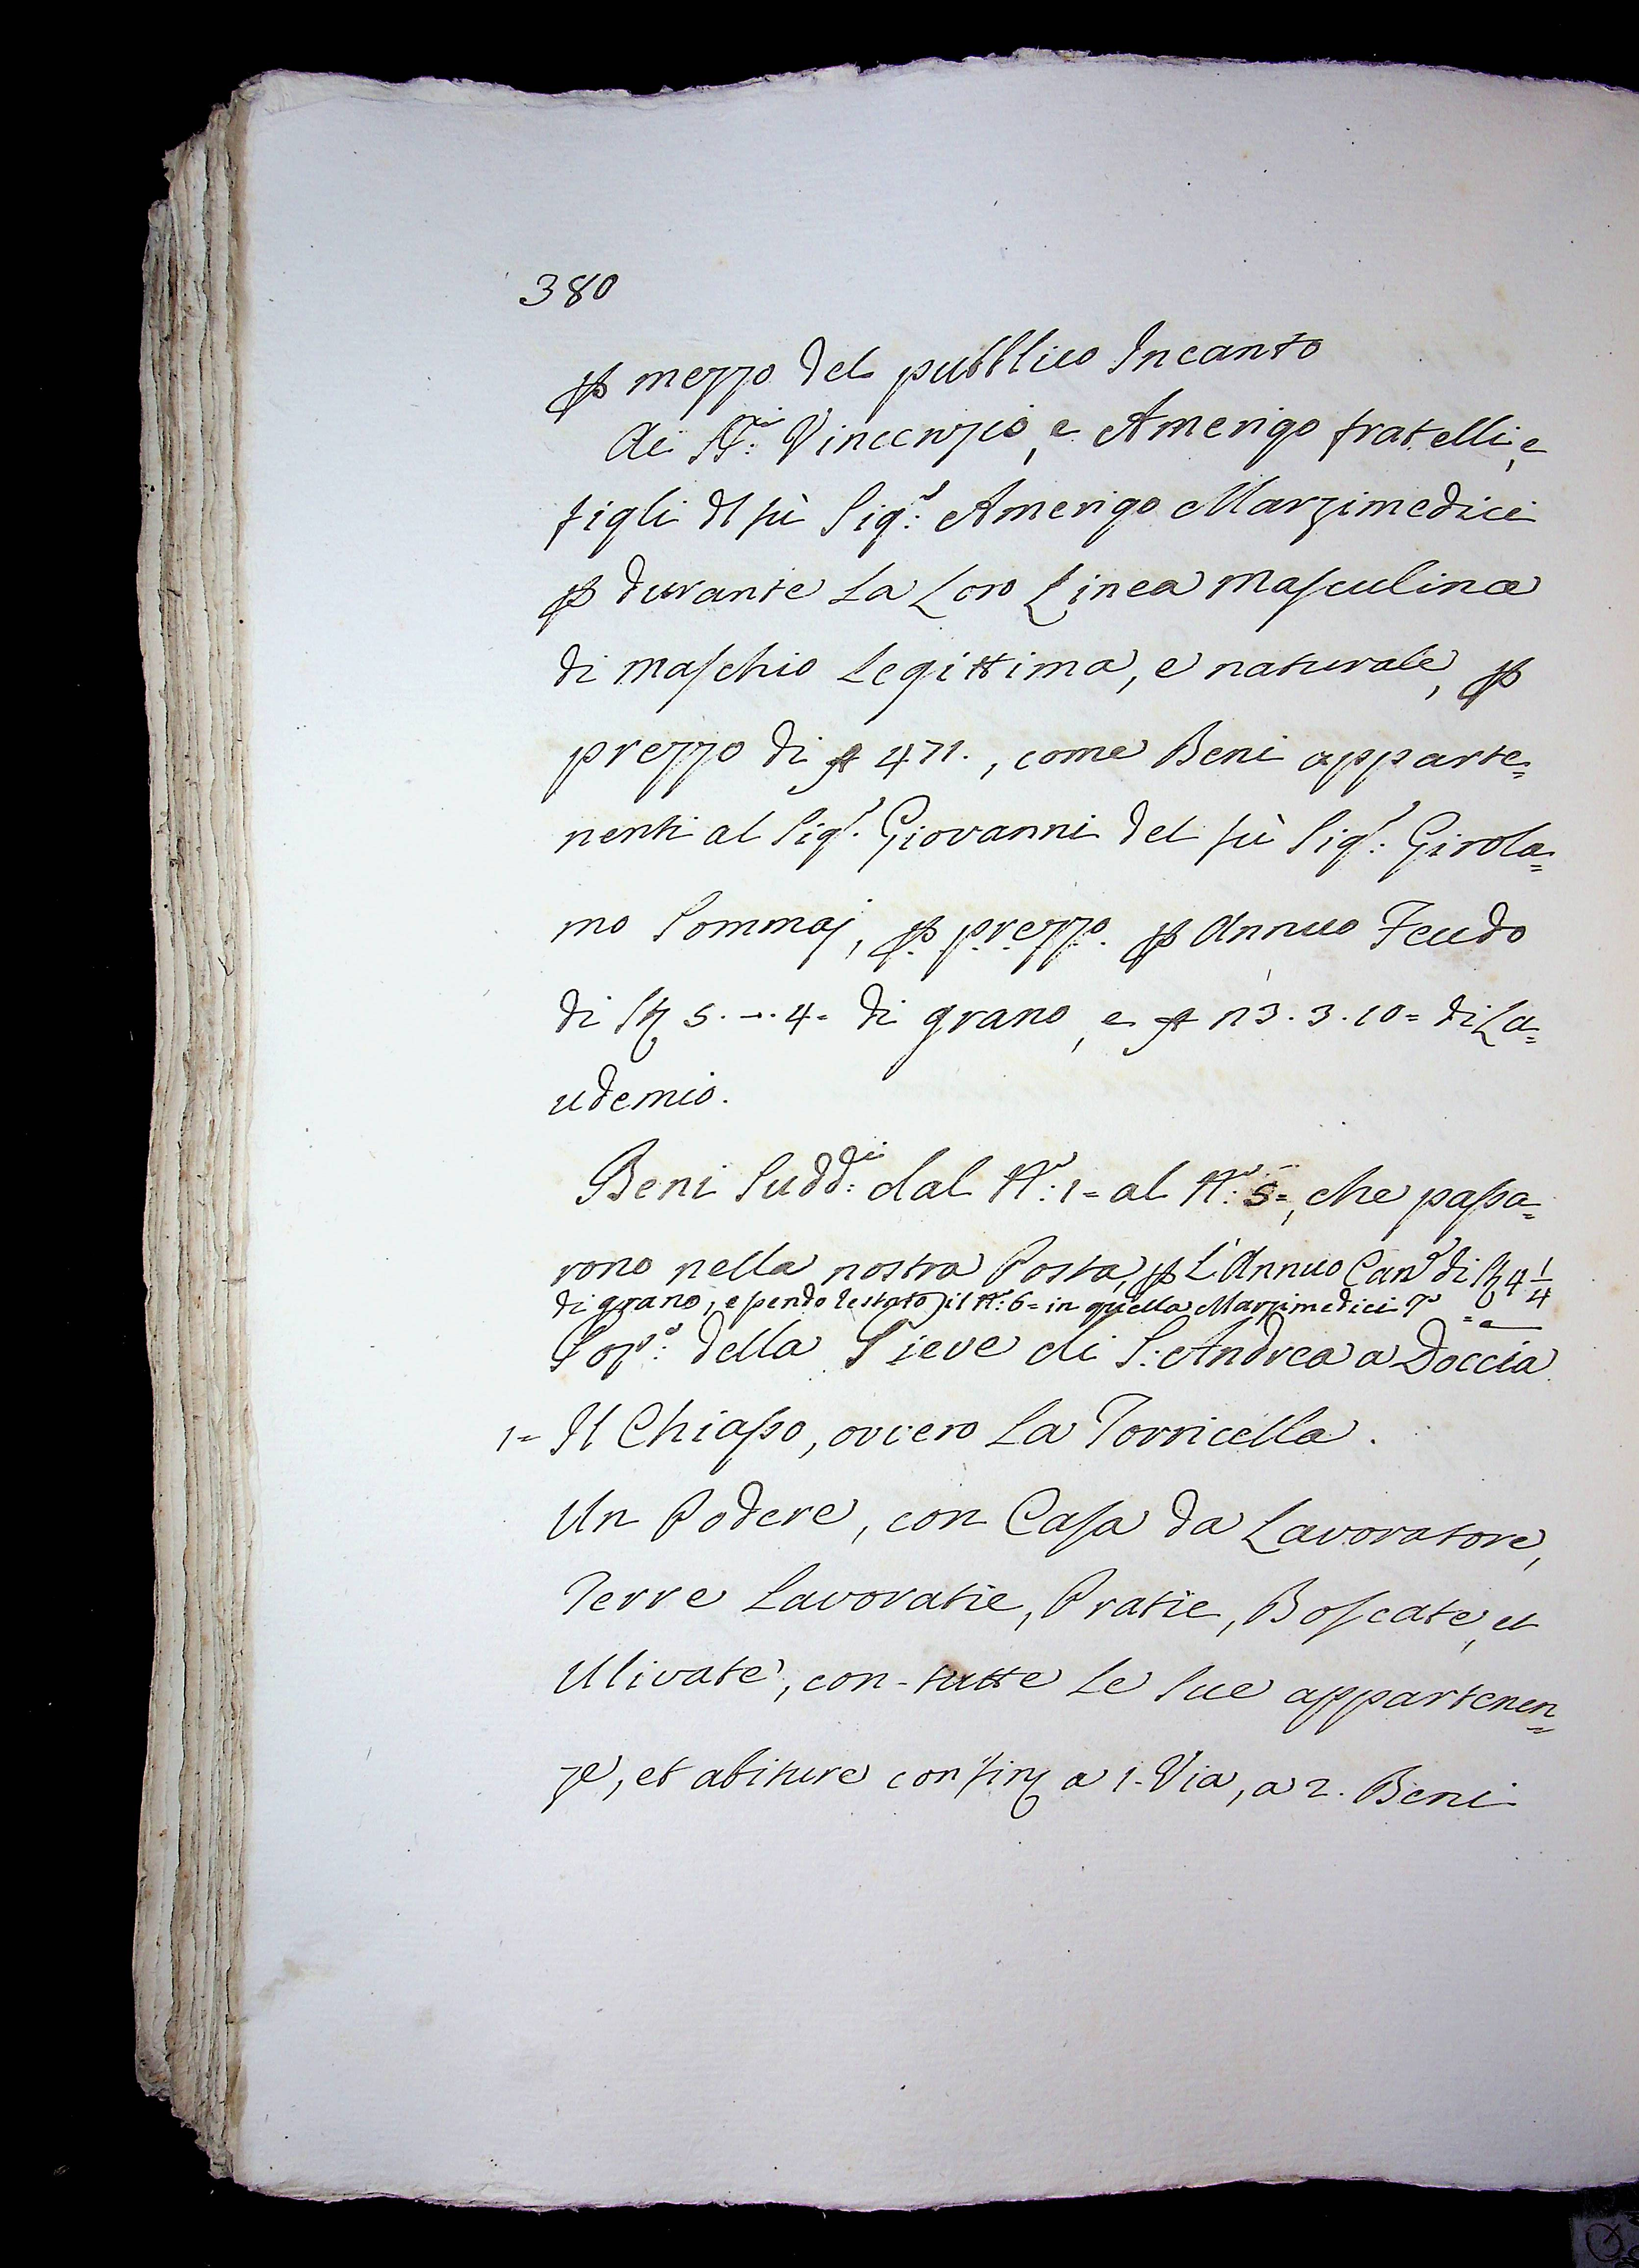 380
ꝑ mezzo del pubblico Incanto
Ai SS:ri Vincenzio, e Amerigo fratelli, e
figli dl fù Sig:r Amerigo Marzimedici
ꝑ durante La Loro Linea Masculina
di maschio Legittima, e naturale, ꝑ
prezzo di 471., come Beni apparte=
nenti al Sig.r Giovanni del fù Sig:r Girola=
mo Sommaj, ꝑ prezzo ꝑ Annuo Feudo
di St 5. -. 4= di grano, e 3. 3. 10= di La=
udemio.
Beni Sudd:i dal N:o 1= al N:o 5=, che passa=
rono nella nostra Posta, ꝑ L'Annuo Can:e di St 4 1/4
di grano, essendo restato il N:o 6= in quella Marzimedici
Pop:o della Pieve di S: Andrea a Doccia
1= Il Chiasso, ovvero La Torricella.
Un Podere, con Casa da Lavoratore,
Terre Lavoratie, Pratie, Boscate, et
Ulivate, con tutte Le Sue appartenen=
ze, et abiture confin a 1. Via, a 2. Beni